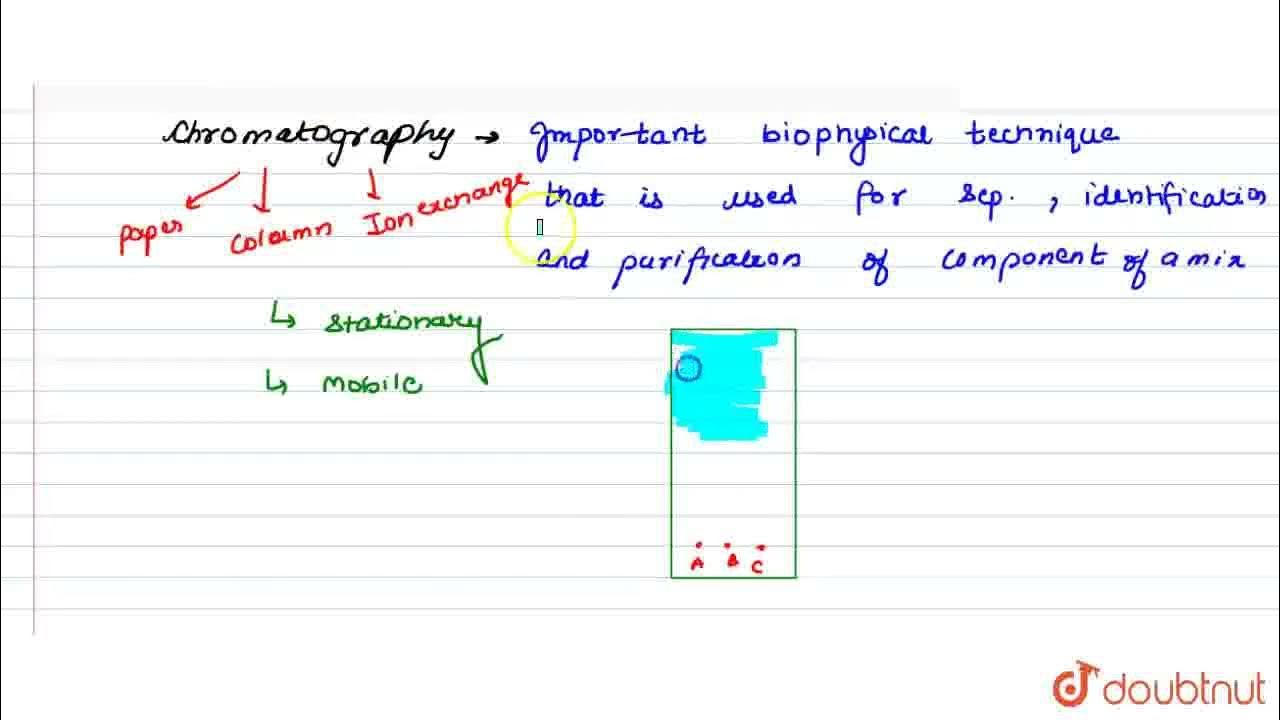 Chromatography → Important biophysical technique
that is used for sep. , identification
and purification of component of a mix
paper column Ion exchange
↳ stationary
↳ mobile
A B C
doubtnut